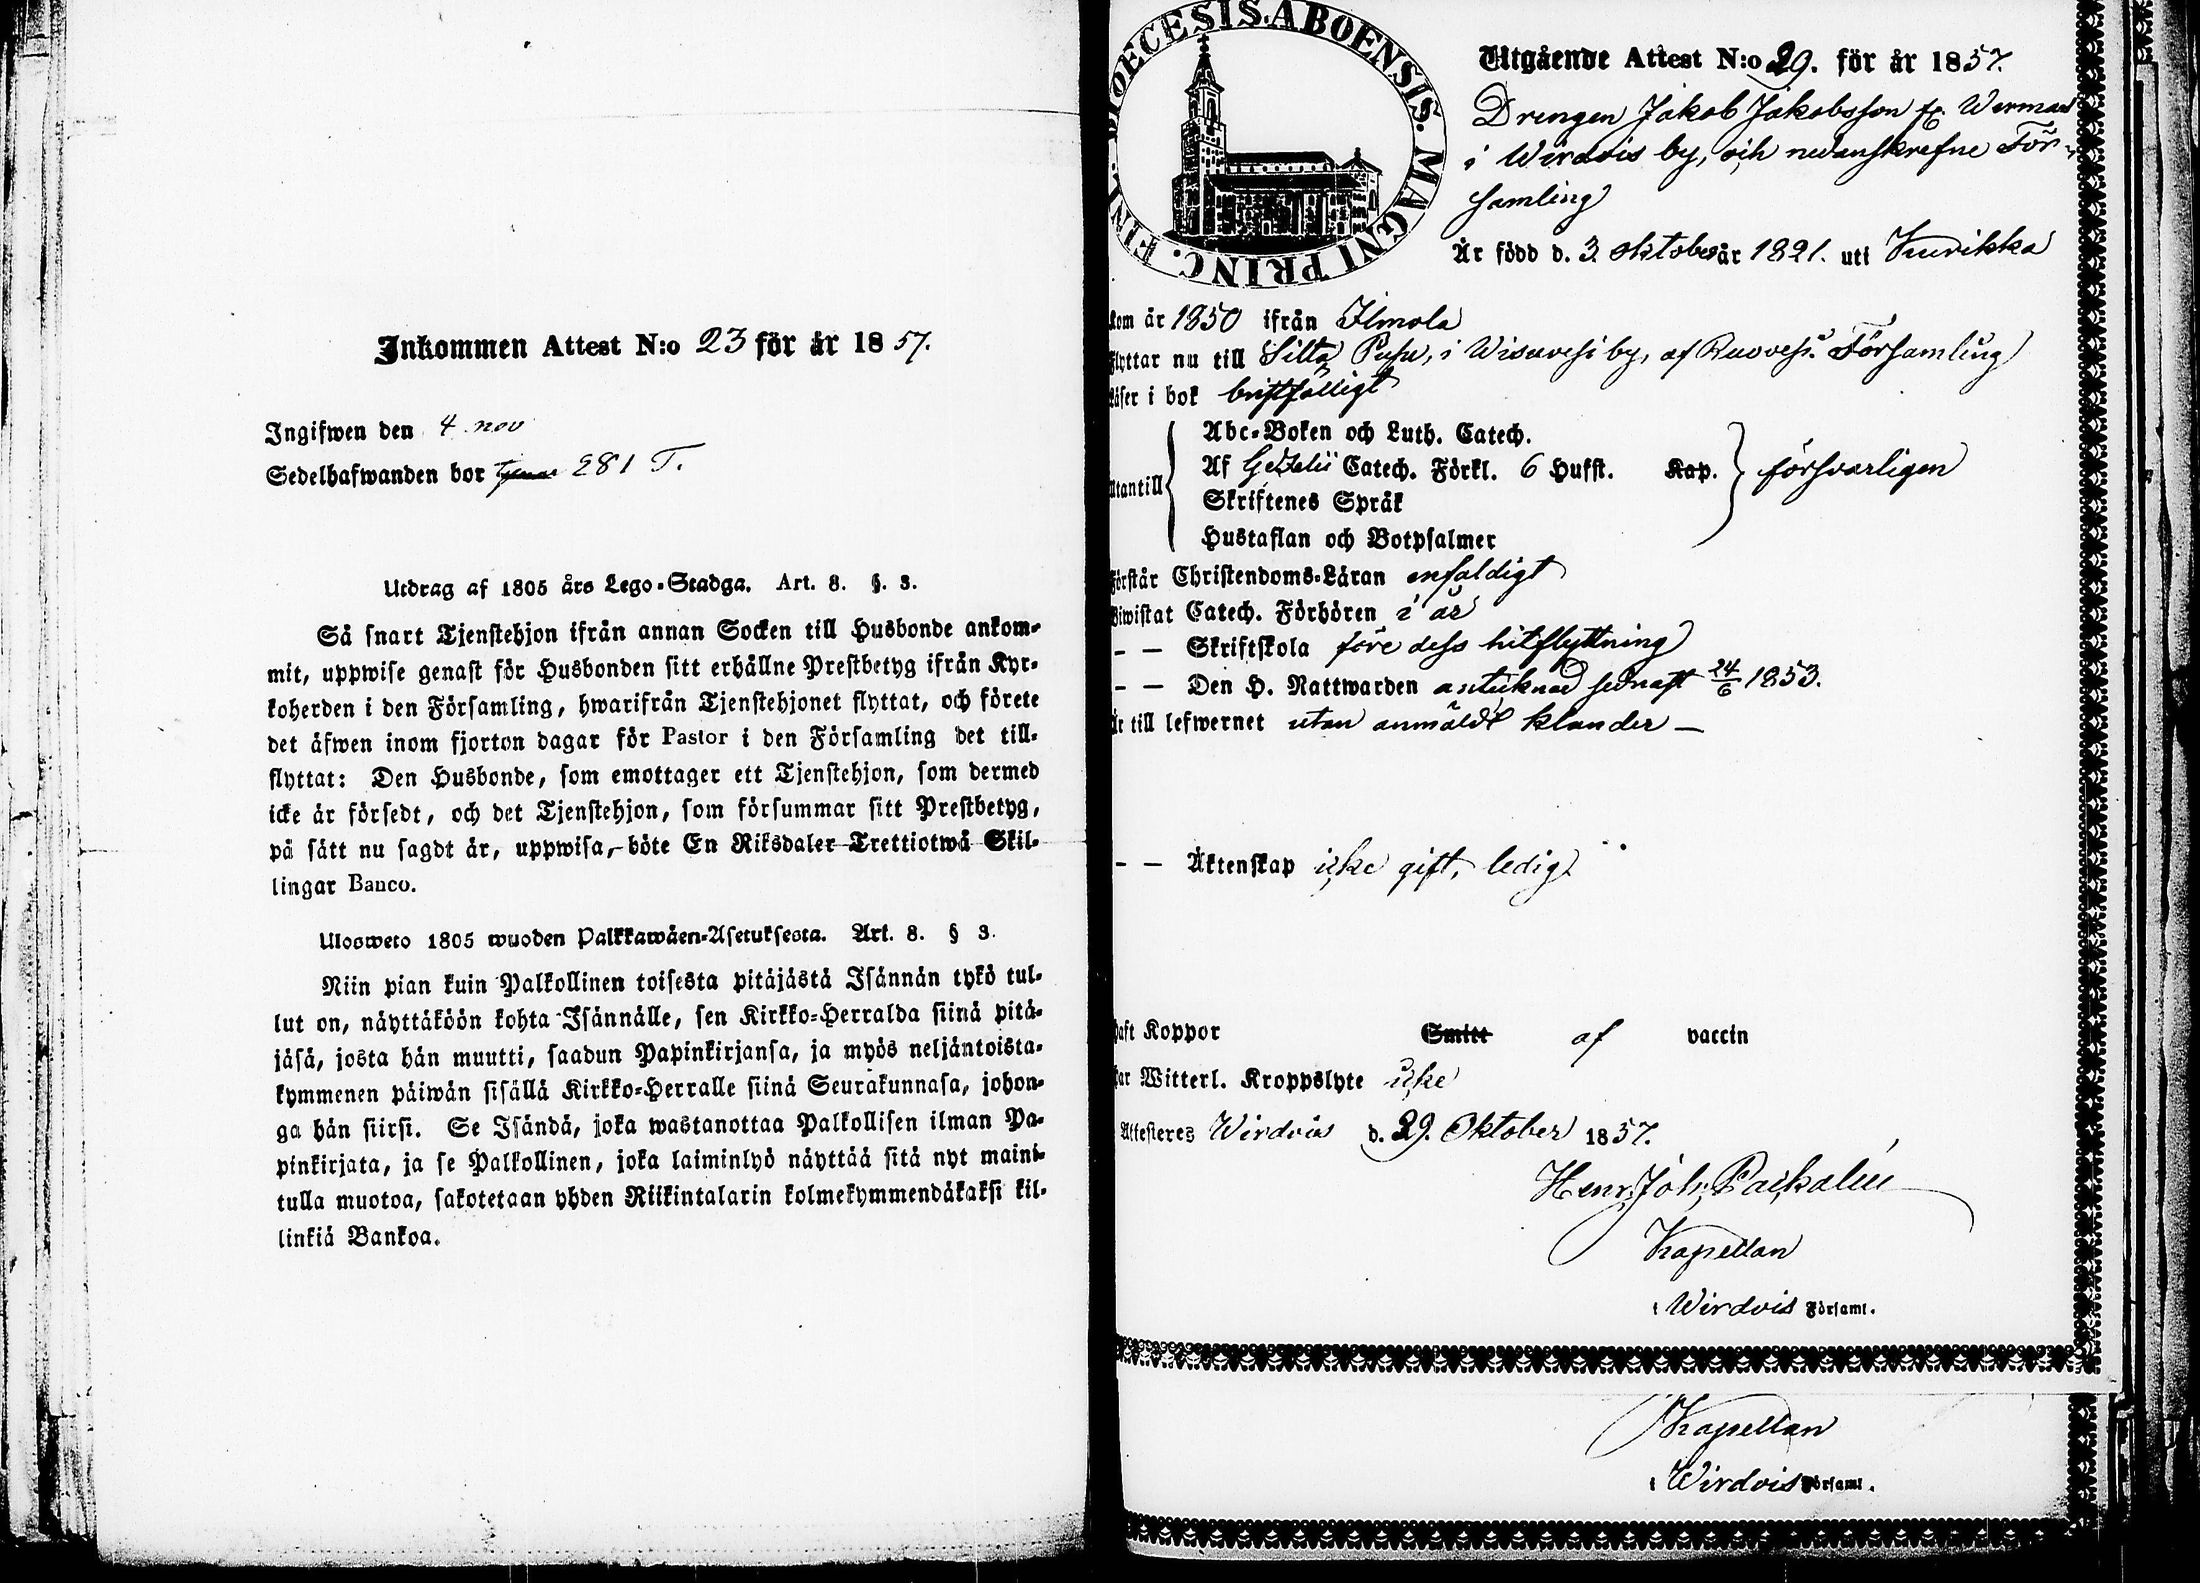 Inkommen Attest N:o 23 för år 1857.
Ingifwen den 4 nov
Sedelhafwanden bor 281 T.
Utdrag af 1805 års Lego-Stadga. Art. 8. §. 3.
Så snart Tjenstehjon ifrån annan Socken till Husbonde ankom-
mit, uppwise genast för Husbonden sitt erhållne Prestbetyg ifrån Kyr-
koherden i den Församling, hwarifrån Tjenstehjonet flyttat, och förete
det äfwen inom fjorton dagar för Pastor i den Församling det till-
flyttat: Den Husbonde, som emottager ett Tjenstehjon, som dermed
icke är försedt, och det Tjenstehjon, som försummar sitt Prestbetyg,
på sätt nu sagdt är, uppwisa, böte En Riksdaler Trettiotwå Skil-
lingar Banco.
Ulosweto 1805 wuoden Palkkawäen-Asetuksesta. Art. 8. § 3.
Niin pian kuin Palkollinen toisesta pitäjästä Isännän tykö tul-
lut on, näyttäköön kohta Isännälle, sen Kirkko-Herralda siinä pitä-
jäsä, josta hän muutti, saadun Papinkirjansa, ja myös neljäntoista-
kymmenen päiwän sisällä Kirkko-Herralle siinä Seurakunnasa, johon-
ga hän siirsi. Se Isändä, joka wastanottaa Palkollisen ilman Pa-
pinkirjata, ja se Palkollinen, joka laiminlyö näyttää sitä nyt maini-
tulla muotoa, sakotetaan yhden Riikintalarin kolmekymmendäkaksi kil-
linkiä Bankoa.
DIOECESIS. ABOENSIS. MAGNI PRINC. FINL.
Utgående Attest N:o 29. för år 1857.
Drengen Jakob Jakobsson fr. Wermas
i Wirdois by, och nedanskrefne För-
samling
Är född d. 3. oktober år 1821. uti Kurikka
kom år 1850 ifrån Ilmola
flyttar nu till Silta Pusu, i Wisuvesi by, af Ruovesi Församling
Läser i bok bristfälligt
Utantill
Abc-Boken och Luth. Catech.
Af Gezelii Catech. Förkl. 6 Hufst. Kap. försvarligen
Skriftenes Språk
Hustaflan och Botpsalmer
Förstår Christendoms-Läran enfaldigt
Biwistat Catech. Förhören i år
– – Skriftskola före dess hitflyttning
– – Den H. Nattwarden antecknad sednast 24/6 1853.
Är till lefwernet utan anmäldt klander –
– – Äktenskap icke gift, ledig
haft Koppor Smitt af vaccin
har Witterl. Kroppslyte icke
Attesteres Wirdois d. 29. Oktober 1857.
Henr. Joh.
Kapellan
i Wirdois Församl.
Kapellan
i Wirdois Församl.